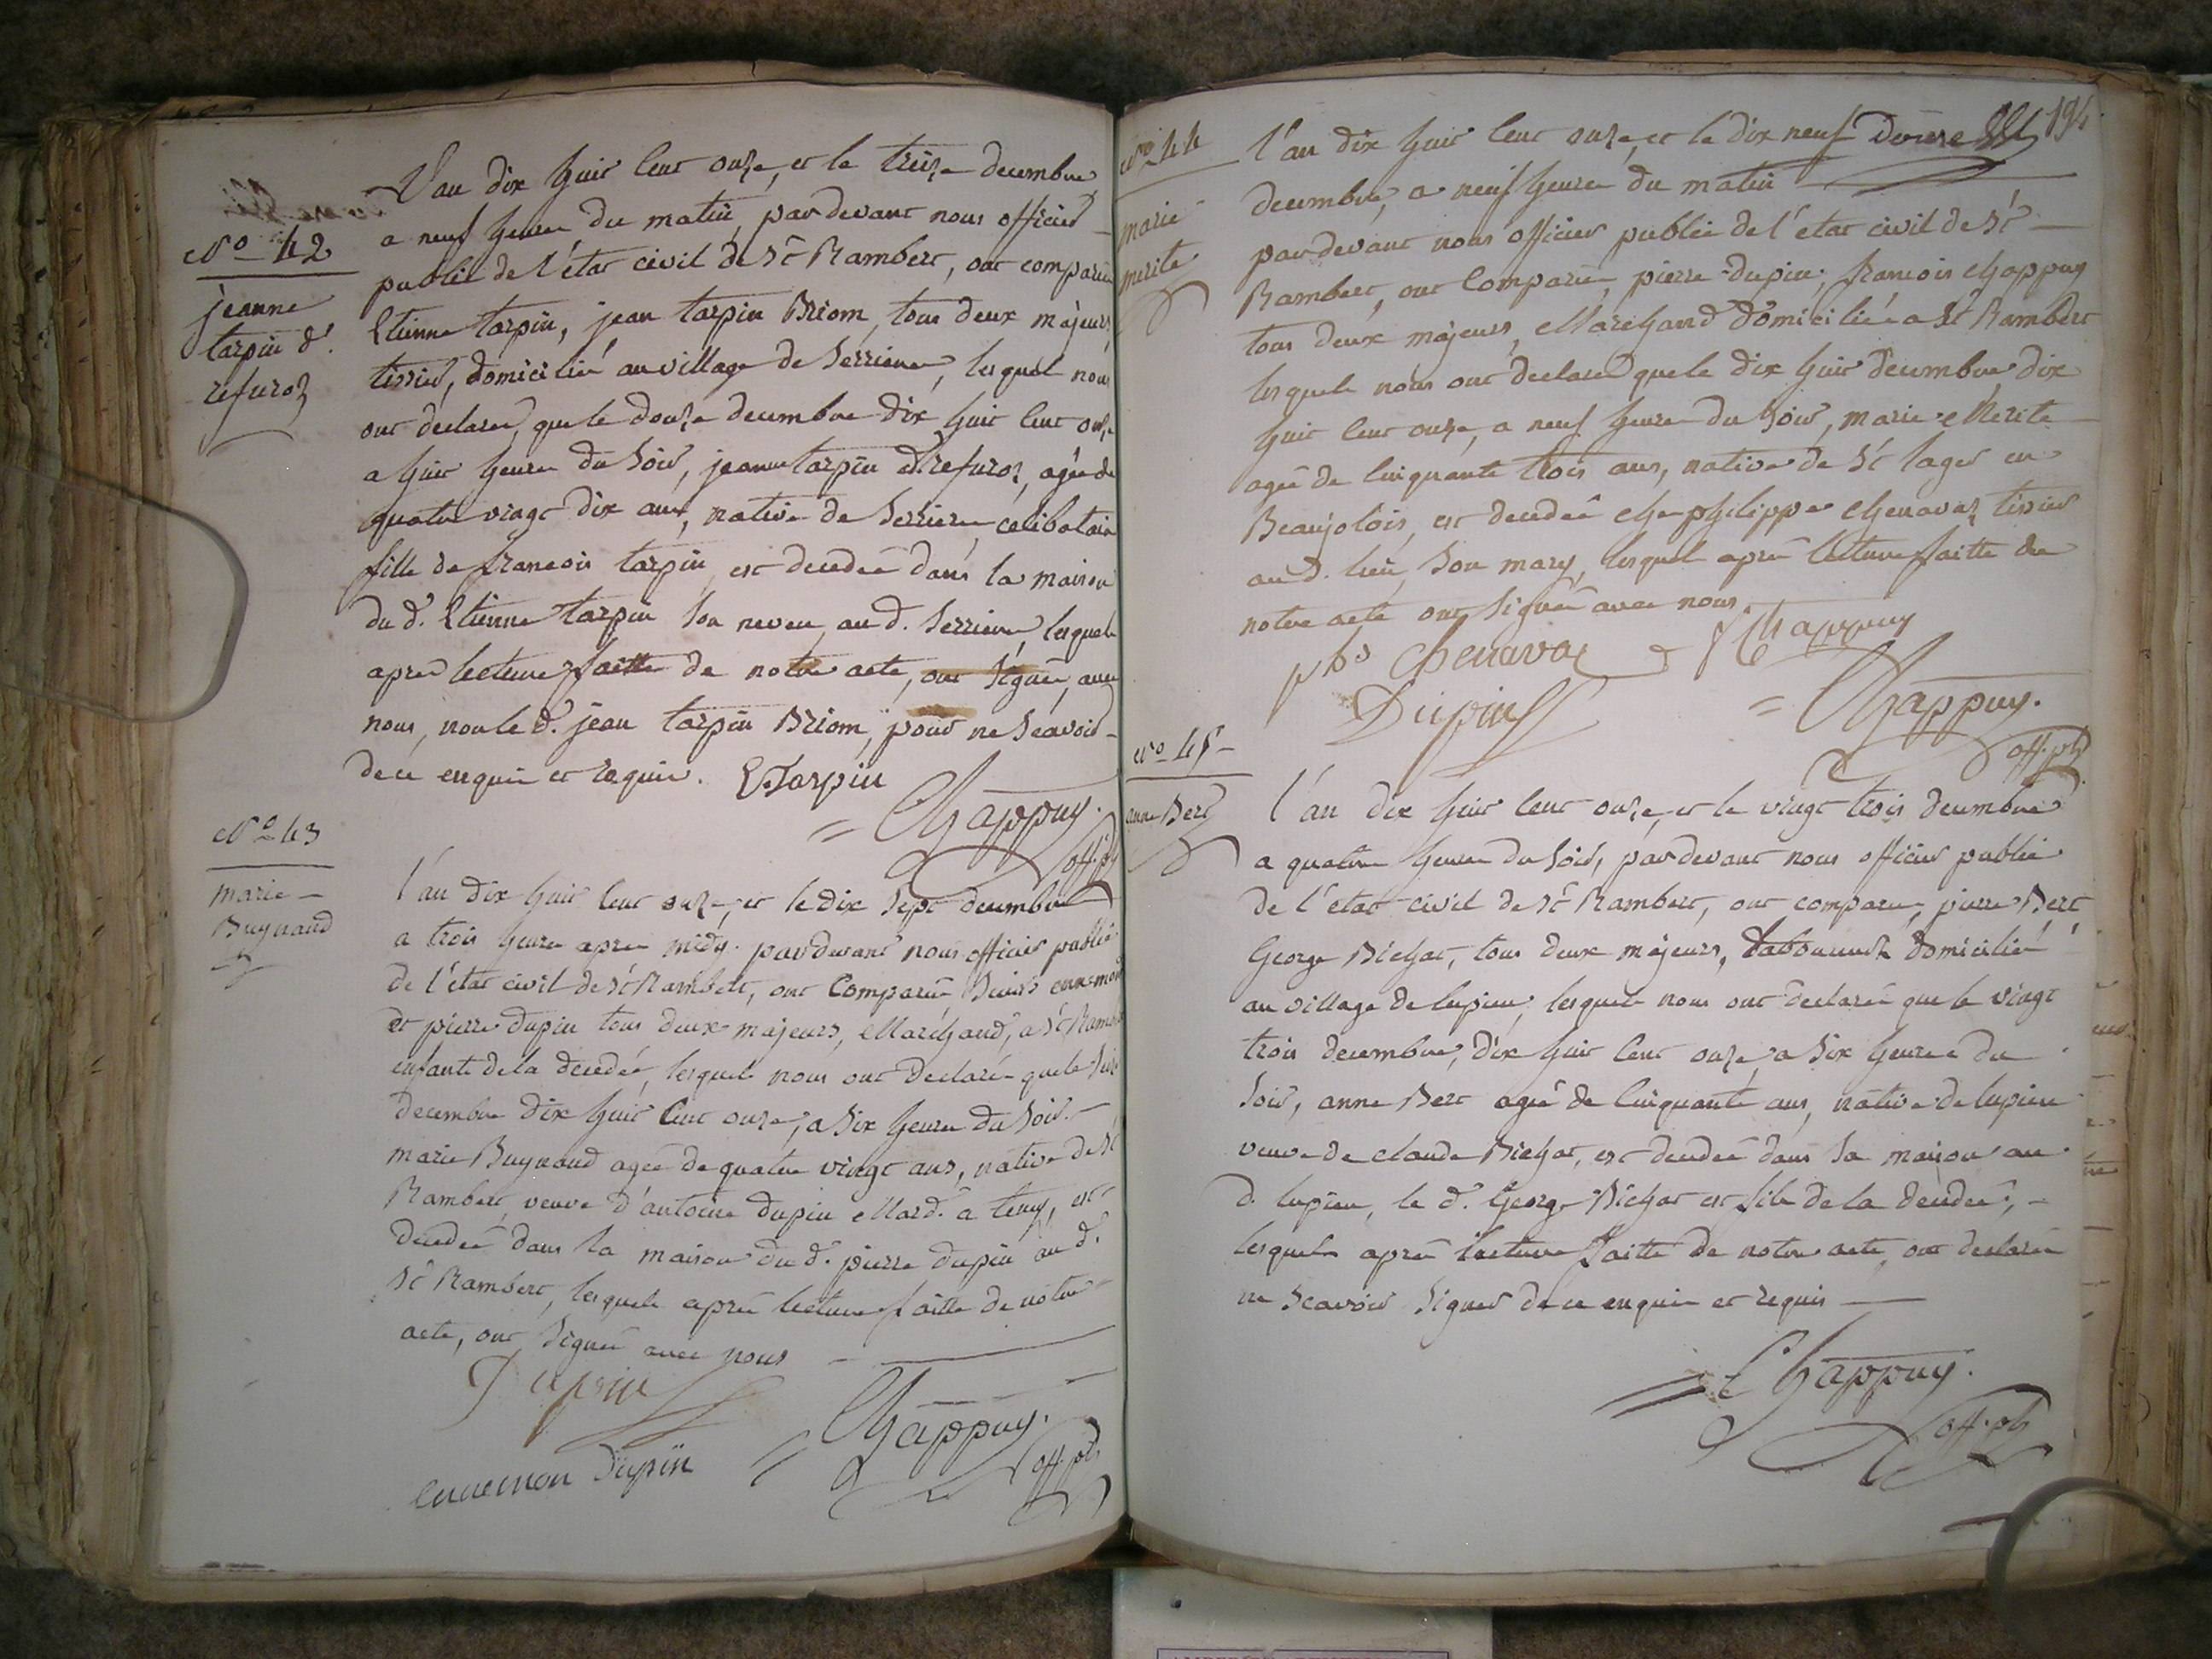 No 42
jeanne
tarpin d.
refuroz
L'an dix huit cent onze, et le treize decembre
a neuf heures du matin, pardevant nous officier
public de l'état civil de St Rambert, ont comparu
Etienne tarpin, jean tarpin Briom, tous deux majeurs,
tissier, domicilié au village de Serriere, lesquel nous
ont declaré, que le douze decembre dix huit cent onze
a huit heures du soir, jeanne tarpin d. refuroz, agée de
quatre vingt dix ans, native de Serriere, celibataire
fille de francois tarpin, est decedée dans la maison
du d. Etienne tarpin son neveu, au d. Serriere, lesquels
apres lecture faitte de notre acte, ont signé, avec
nous, non le d. jean tarpin Briom, pour ne scavoir
de ce enquis et requis. E. Tarpin
Chappuy.
off. pb
No 43
marie
Buynaud
l'an dix huit cent onze, et le dix sept decembre
a trois heures apres midy. pardevant nous officier public
de l'état civil de St Rambert, ont comparu Sieurs ennemond
et pierre dupin tous deux majeurs, Marchand, a St Rambert
enfants de la decedée, lesquels nous ont declaré que le seize
decembre dix huit cent onze, a six heures du soir
marie Buynaud agée de quatre vingt ans, native de St
Rambert, veuve d'antoine dupin Mard. a tenay, est
decedée dans la maison du d. pierre dupin au d.
St Rambert, lesquels après lecture faitte de notre
acte, ont signé avec nous
Dupin
Chappuy.
off. pb
ennemon Dupin
194
No 44
marie
merite
l'an dix huit cent onze, et le dix neuf
decembre, a neuf heures du matin
pardevant nous officier public de l'état civil de St
Rambert, ont comparu, pierre dupin, francois chappuy
tous deux majeurs, Marchand domiciliés a St Rambert
lesquels nous ont declaré que le dix huit decembre dix
huit cent onze, a neuf heures du soir, marie Merite
agée de cinquante trois ans, native de St lager en
Beaujolois, est decedée chez philippe chenavaz, tissier
au d. lieu, son mary, lesquel après lecture faitte de
notre acte ont signé avec nous.
phs Chenavaz f Chappuy
Dupin
Chappuy.
off. pb
No 45
anne Bert
l'an dix huit cent onze, et le vingt trois decembre
a quatre heures du soir, pardevant nous officier public
de l'état civil de St Rambert, ont comparu, pierre Bert
George Bichat, tous deux majeurs, Laboureurs domicilié
au village de lupieu, lesquels nous ont declaré que le vingt
trois decembre, dix huit cent onze, a six heures du
soir, anne Bert agée de cinquante ans, native de lupieu
veuve de claude Bichat, est decedée dans sa maison au
d. lupieu, le d. George Bichat est fils de la decedée,
lesquels après lecture faitte de notre acte, ont declaré
ne scavoir signer de ce enquis et requis
Chappuy.
off. pb